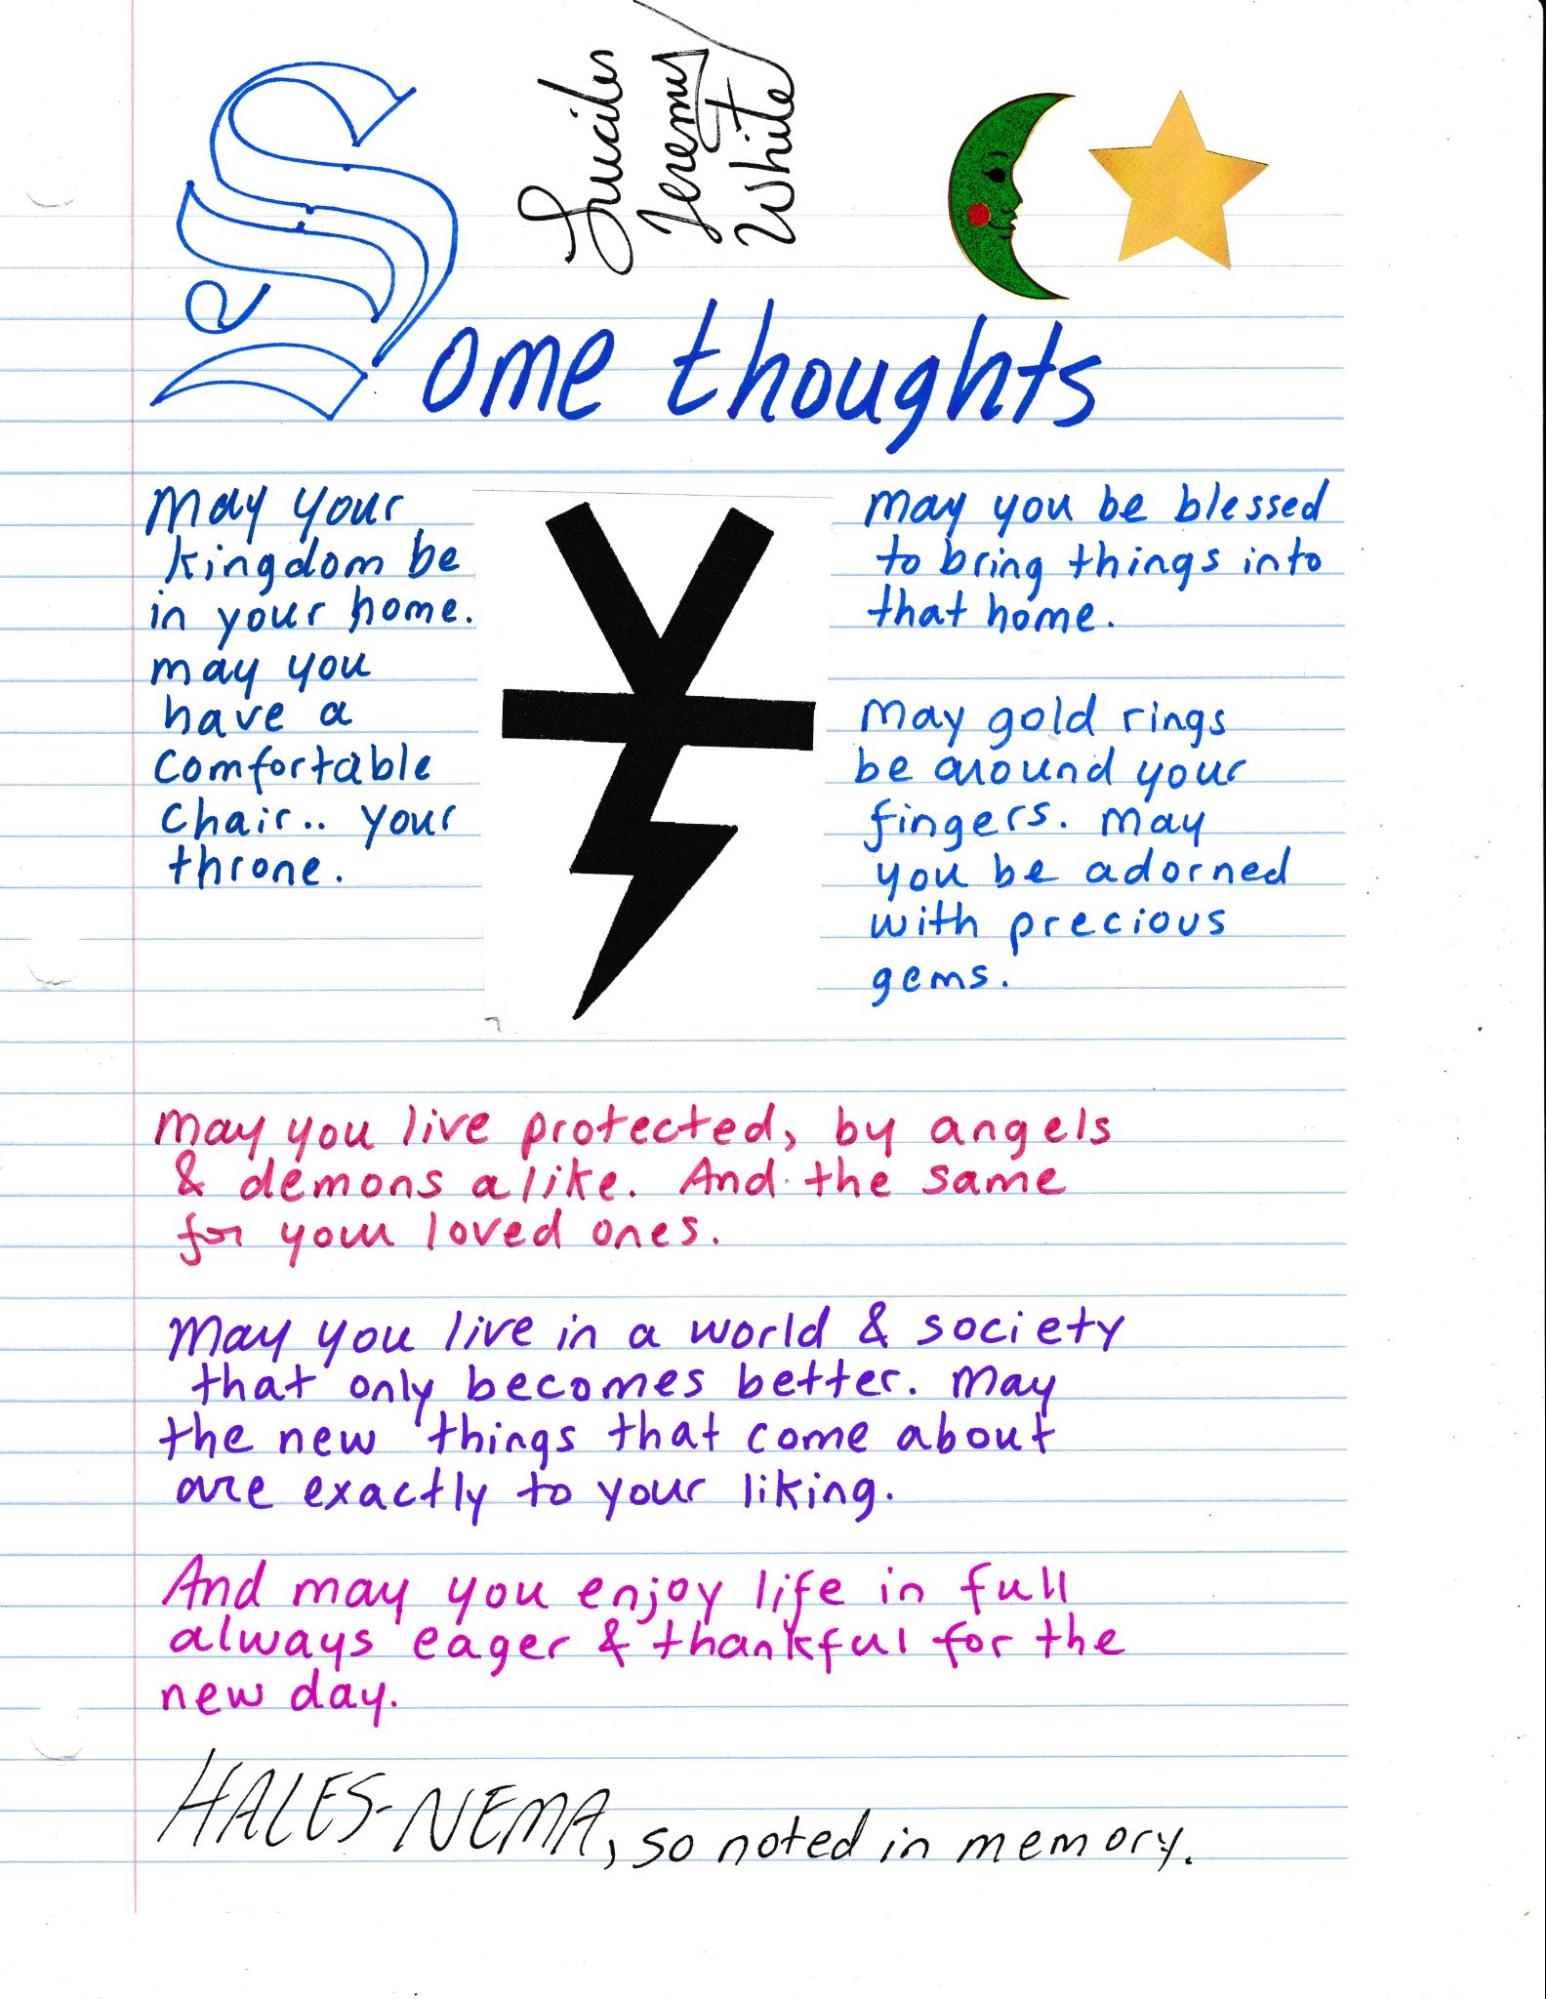 Lucian
Jeremy
White
Some thoughts
May your
kingdom be
in your home.
may you
have a
comfortable
chair.. your
throne.
May you be blessed
to bring things into
that home.
May gold rings
be around your
fingers. May
you be adorned
with precious
gems.
May you live protected, by angels
& demons alike. And the same
for your loved ones.
May you live in a world & society
that only becomes better. May
the new things that come about
are exactly to your liking.
And may you enjoy life in full
always eager & thankful for the
new day.
HALES-NEMA, so noted in memory.